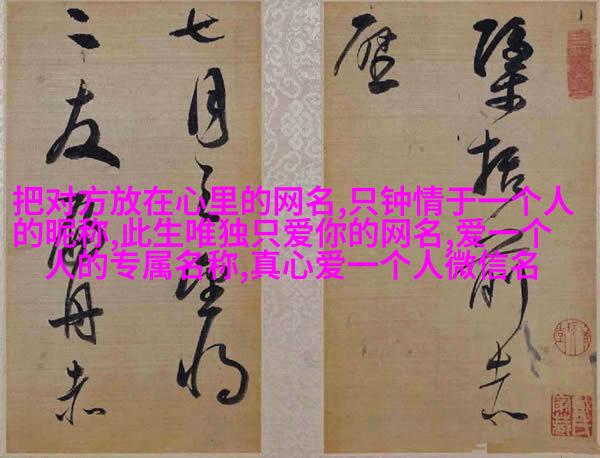 把对方放在心里的网名,只钟情于一个人
的昵称,此生唯独只爱你的网名,爱一个
人的专属名称,真心爱一个人微信名
括前赤
壁
七月之望
二友 赤